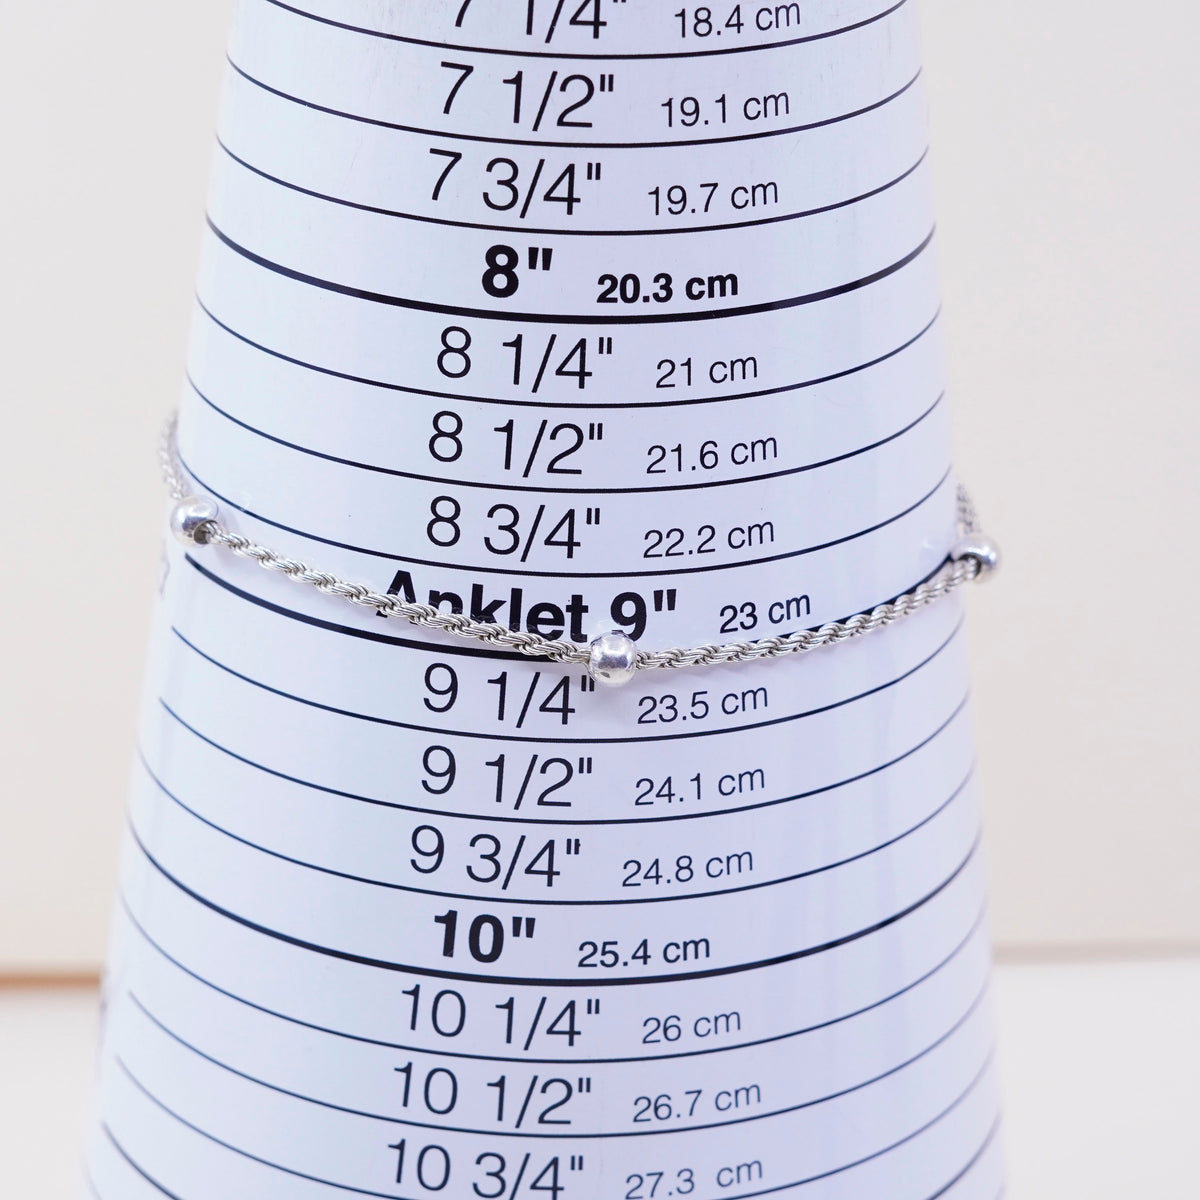 7 1/4" 18.4 cm
7 1/2" 19.1 cm
7 3/4" 19.7 cm
8" 20.3 cm
8 1/4" 21 cm
8 1/2" 21.6 cm
8 3/4" 22.2 cm
Anklet 9" 23 cm
9 1/4" 23.5 cm
9 1/2" 24.1 cm
9 3/4" 24.8 cm
10" 25.4 cm
10 1/4" 26 cm
10 1/2" 26.7 cm
10 3/4" 27.3 cm